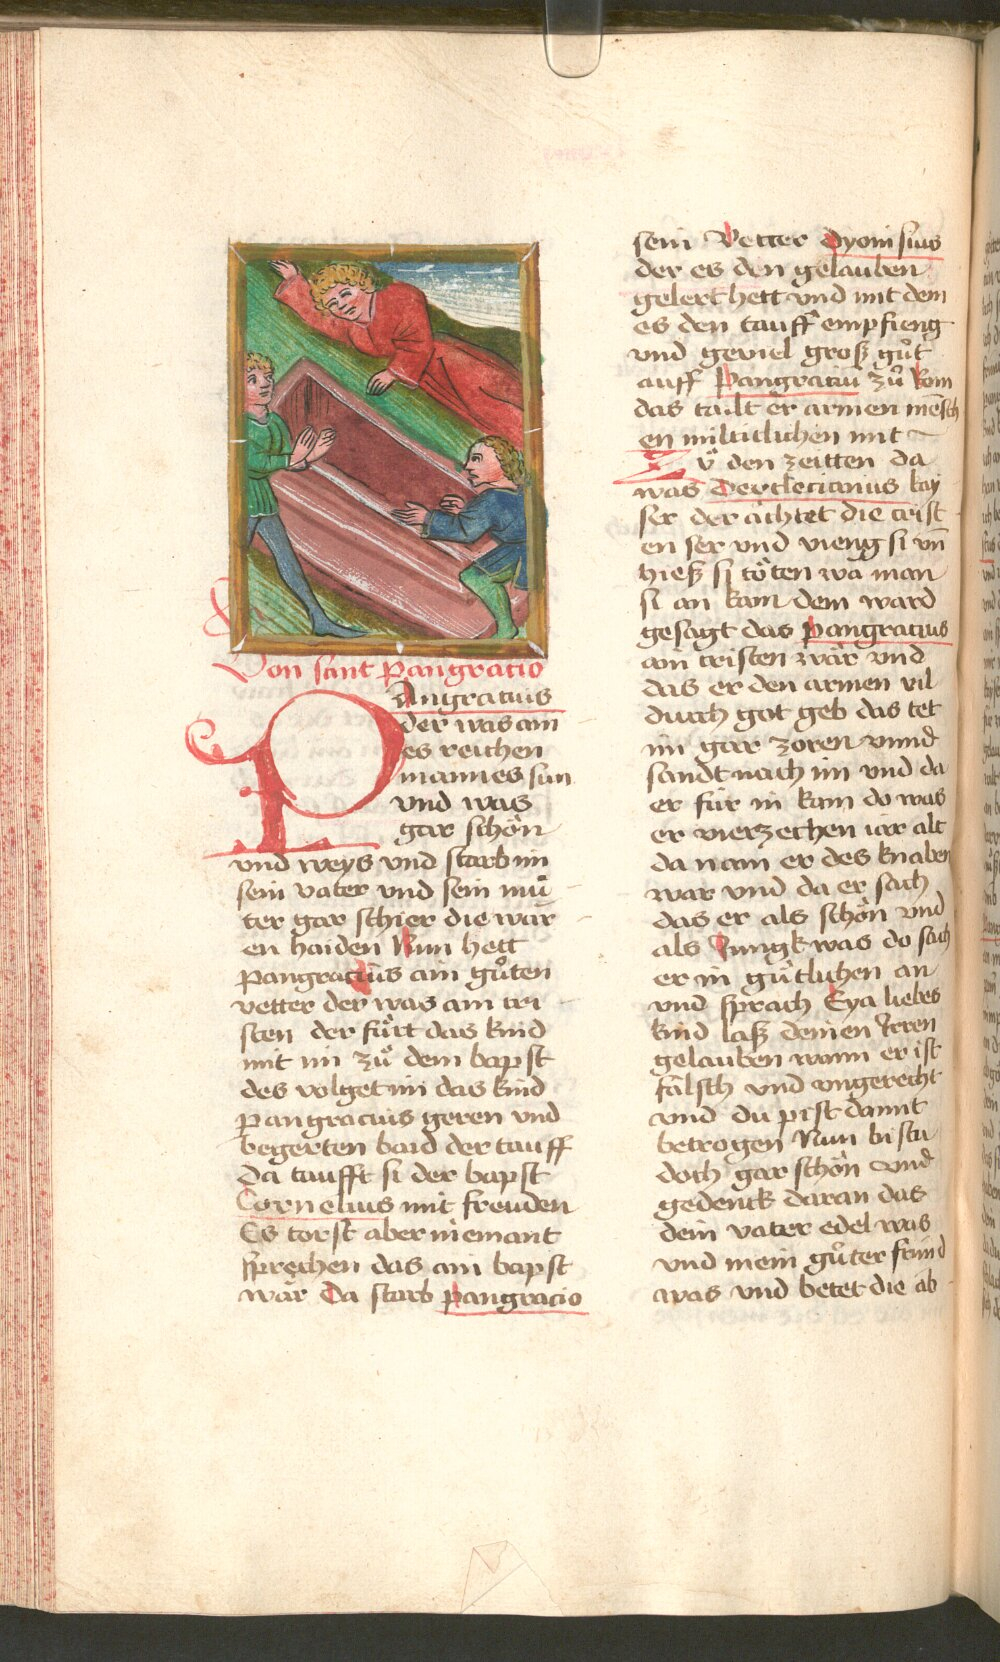 Von sant Pangratio
PAngratius
der was ain
es reichen
mannes sun
vnd was
gar schön
vnd weys vnd starb im
sein vater vnd sein mů
ter gar schier die war
en haiden Nun hett
pangratius ain gůten
vetter der was ain cri
sten der fůrt das kind
mit im zů dem bapst
des volget im das kind
pangracius geren vnd
begerten baid der tauff
Da taufft si der bapst
Cornelius mit freuden
Es torst aber niemant
sprechen das ain bapst
wär Da starb pangracio
sein Vetter Dyonisius
der es den gelauben
gelert hett vnd mit dem
es den tauff empfieng
vnd geviel groß gůt
auff Pangratiu zů kom
das tailt er armen mēsch
en miltiklichen mit
Zů den zeitten da
was Deocletianus kay
ser der ächtet die crist
en ser vnd vieng si vn̄
hieß si töten wa man
si an kam dem ward
gesagt das pangratius
ain cristen wär vnd
das er den armen vil
durch got geb das tet
im gar zoren vnnd
sandt nach im vnd da
er für in kam do was
er vierzechen iar alt
da nam er des knaben
war vnd da er sach
das er als schön vnd
als Jungk was do sach
er in gütlichen an
vnd sprach Eya liebes
kind laß deinen Jrren
gelauben wann er ist
falsch vnd vngerecht
vnd du pist damit
betrogen Nun bistu
doch gar schön vnd
gedenck daran das
dein vater edel was
vnd mein gůter frund
was vnd betet die ab